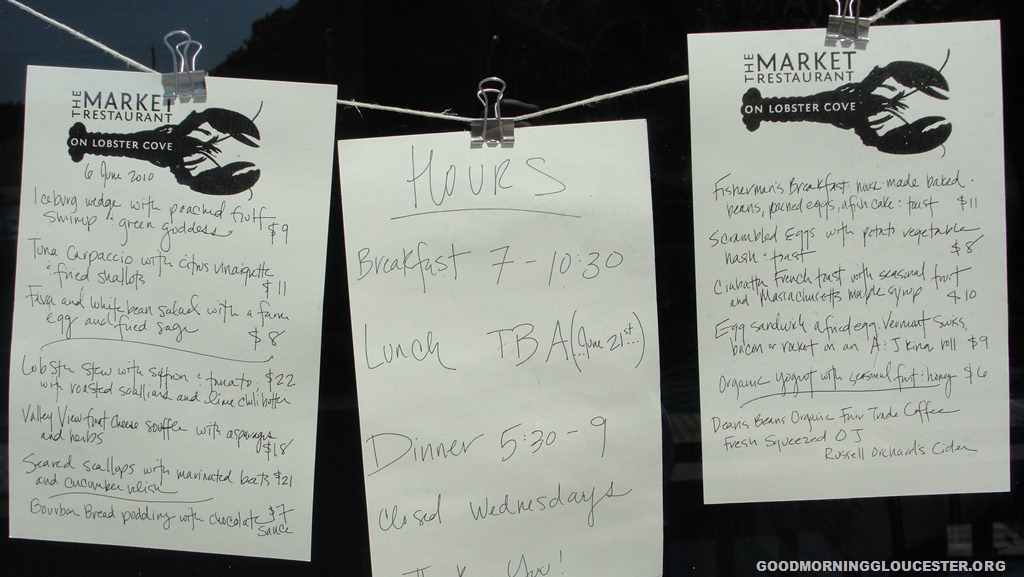 THE MARKET
RESTAURANT
ON LOBSTER COVE
6 June 2010
Iceburg wedge with poached
shrimp + green goddess $9
Tuna Carpaccio with citrus vinaigrette
+ fried shallots $11
Fava and white bean salad with a farm
egg and fried sage $8
Lobster stew with saffron + tomato, $22
with roasted scallions and lime chili butter
Valley View Cheese souffle with asparagus
and herbs $18
Seared scallops with marinated beets $21
and cucumber relish
Bourbon Bread pudding with chocolate $7
sauce
HOURS
Breakfast 7 - 10:30
Lunch TBA (..June 21st..)
Dinner 5:30 - 9
Closed Wednesdays
Thank You!
THE MARKET
RESTAURANT
ON LOBSTER COVE
Fisherman's Breakfast: house-made baked
beans, poached eggs, a fish cake + toast $11
Scrambled Eggs with potato vegetable
hash + toast $8
Ciabatta French toast with seasonal fruit
and Massachusetts maple syrup $10
Egg sandwich: a fried egg, Vermont Swiss,
bacon or rocket on an A + J King roll $9
Organic Yogurt with seasonal fruit + honey $6
Deans Beans Organic Fair Trade Coffee
Fresh Squeezed OJ
Russell Orchards Cider
GOODMORNINGGLOUCESTER.ORG